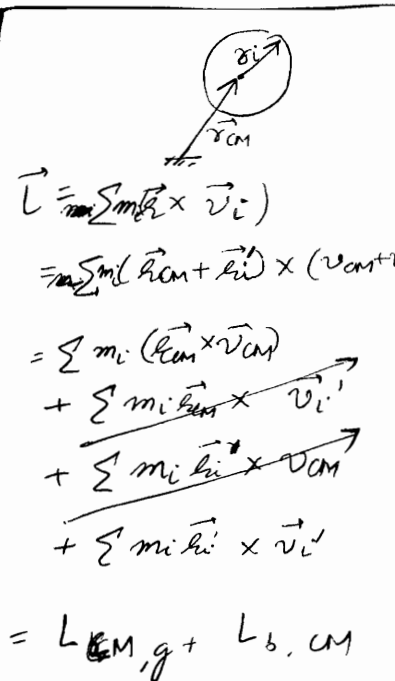 r_i
\vec{r}_{CM}
\vec{L} = \sum m_i (\vec{r} \times \vec{v}_i)
= \sum m_i (\vec{r}_{CM} + \vec{r}_i') \times (v_{CM} + v
= \sum m_i (\vec{r}_{CM} \times \vec{v}_{CM})
+ \sum m_i \vec{r}_{CM} \times \vec{v}_i'
+ \sum m_i \vec{r}_i' \times v_{CM}
+ \sum m_i \vec{r}_i' \times \vec{v}_i'
= L_{CM, g} + L_{b, CM}